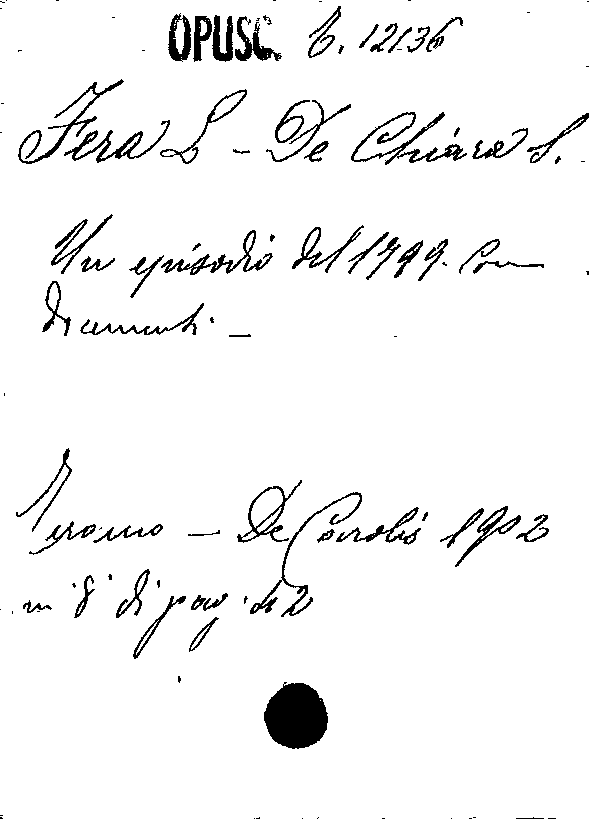 OPUSC. B. 12136
Fera L - De Chiara S.
Un episodio del 1799. Con
documenti. -
Teramo - De Carolis 1902
in 8° di pag. 42